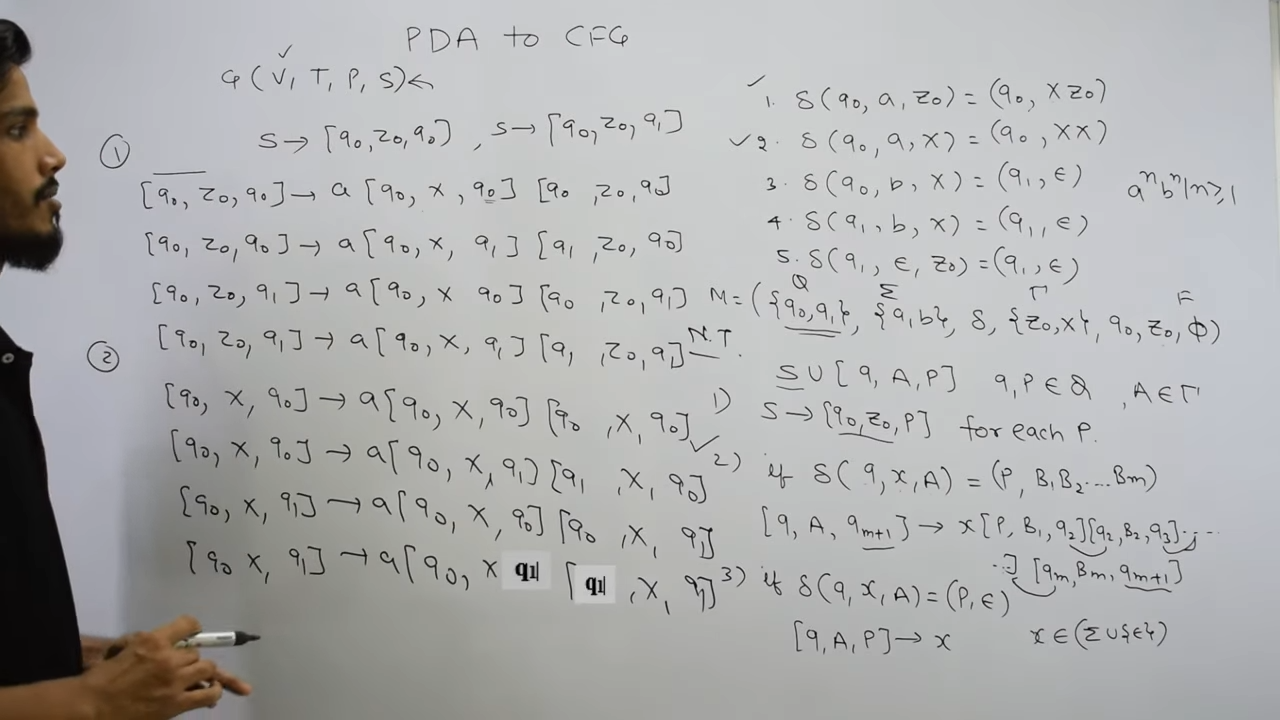 PDA to CFG
G(V, T, P, S)←
✓
① S → [q0, z0, q0] , S → [q0, z0, q1]
[q0, z0, q0] → a [q0, x, q0] [q0, z0, q0]
[q0, z0, q0] → a [q0, x, q1] [q1, z0, q0]
[q0, z0, q1] → a [q0, x q0] [q0, z0, q1]
[q0, z0, q1] → a [q0, x, q1] [q1, z0, q1]
②
[q0, x, q0] → a [q0, x, q0] [q0, x, q0]
[q0, x, q0] → a [q0, x, q1] [q1, x, q0]
[q0, x, q1] → a [q0, x, q0] [q0, x, q1]
[q0 x, q1] → a [q0, x q1 [q1, x, q1]
✓ 1. δ(q0, a, z0) = (q0, xz0)
✓ 2. δ(q0, a, x) = (q0, xx)
3. δ(q0, b, x) = (q1, ε)
aⁿbⁿ|n≥1
4. δ(q1, b, x) = (q1, ε)
5. δ(q1, ε, z0) = (q1, ε)
Q Σ Γ F
M = ({q0, q1}, {a, b}, δ, {z0, x}, q0, z0, ϕ)
N.T.
S ∪ [q, A, P] q, P ∈ Q , A ∈ Γ
1) S → [q0, z0, P] for each P.
✓ 2) if δ(q, x, A) = (P, B1 B2 .... Bm)
[q, A, qm+1] → x [P, B1, q2][q2, B2, q3]....
..] [qm, Bm, qm+1]
3) if δ(q, x, A) = (P, ε)
[q, A, P] → x x ∈ (Σ ∪ {ε})